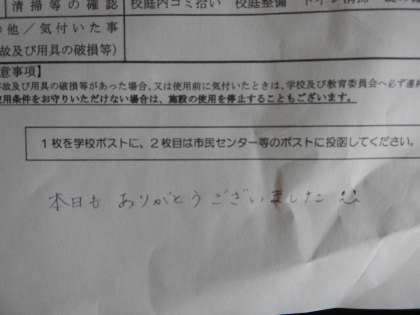 清掃等の確認 校庭内ゴミ拾い 校庭整備
の他／気付いた事
故及び用具の破損等）
意事項】
故及び用具の破損等があった場合、又は使用前に気付いたときは、学校及び教育委員会へ必ず連絡
使用条件をお守りいただけない場合は、施設の使用を停止することもございます。
１枚を学校ポストに、２枚目は市民センター等のポストに投函してください。
本日も ありがとうございました